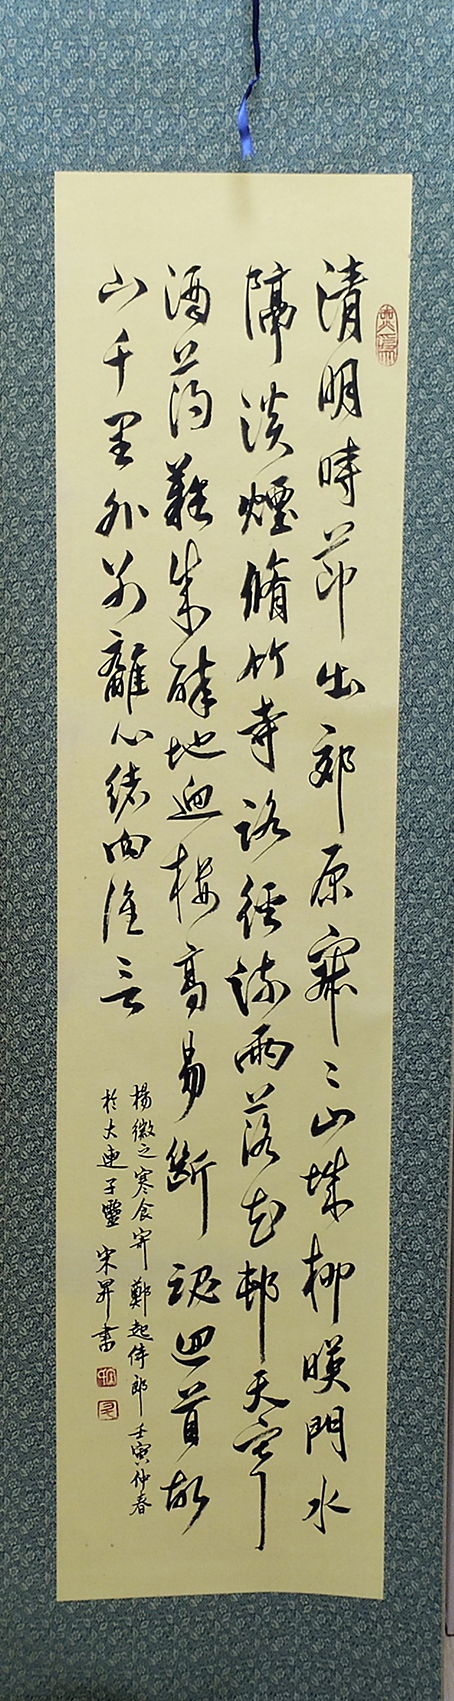 清明時節出郊原寂〻山城柳暎門水
隔淡煙脩竹寺路經疎雨落花邨天寒
酒薄難成醉地迥樓高易斷魂迴首故
山千里外別離心緒向誰言
楊徽之寒食寄鄭起侍郎 壬寅仲春
於大連子 宋昇書